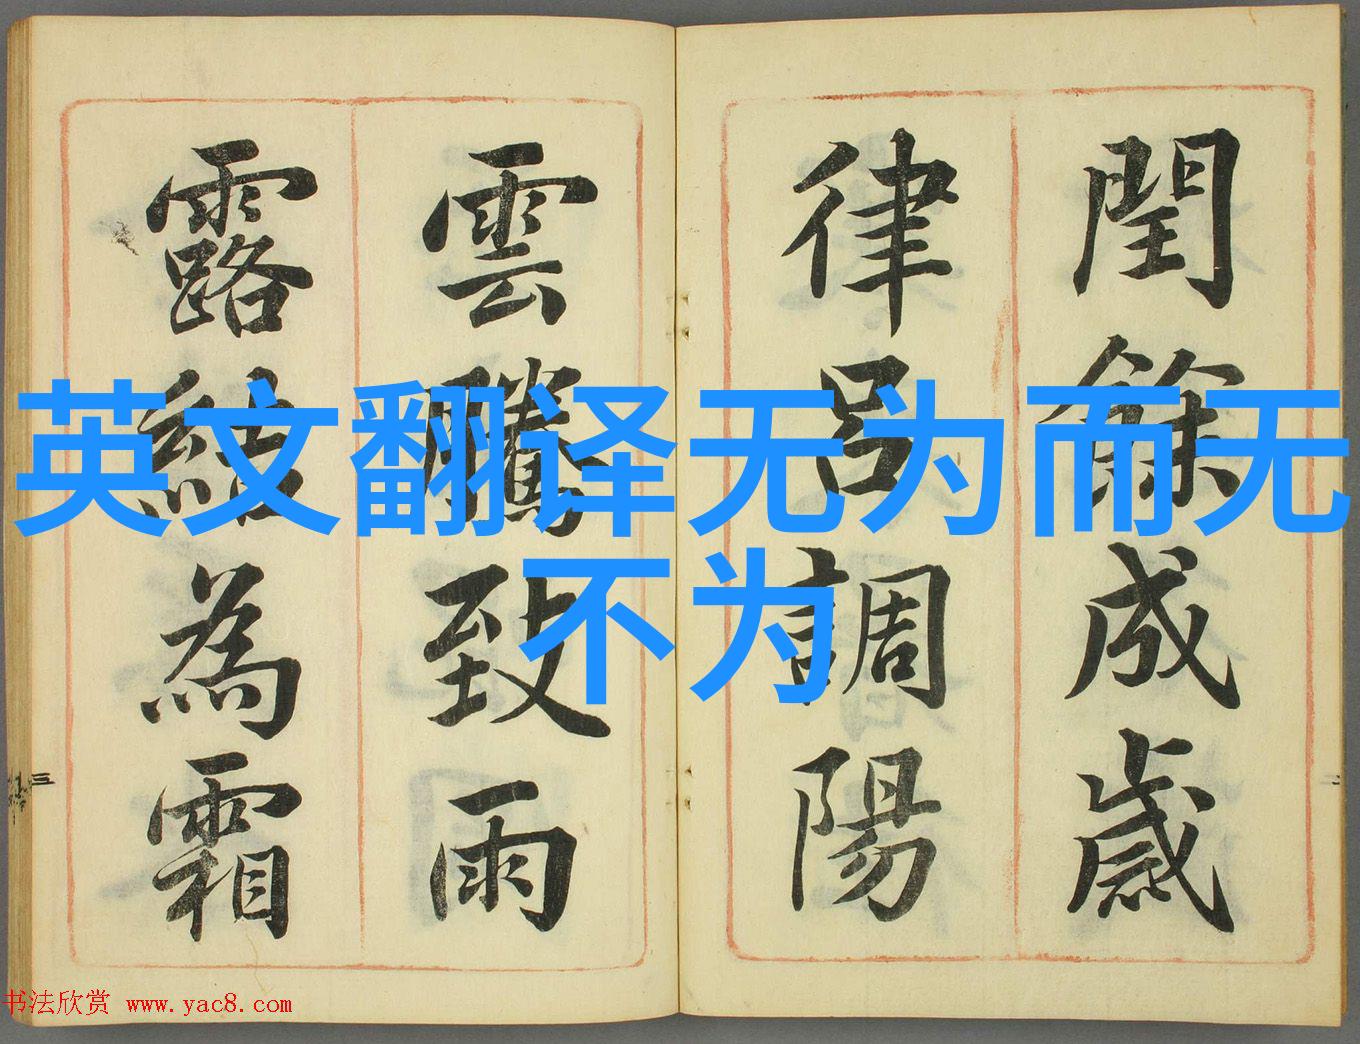 閏餘成歲
律呂調陽
雲騰致雨
露結為霜
英文翻译无为而无
不为
三
书法欣赏 www.yac8.com